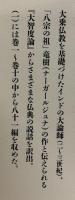 大乗仏教を基礎づけたインドの大論師(二-三世紀)、
「八宗の祖」竜樹(ナーガールジュナ)の作と伝えられる
『大智度論』からさまざまな仏典の説話を訳出。
(一)には巻一〜巻十の中から八十一編を収めた。